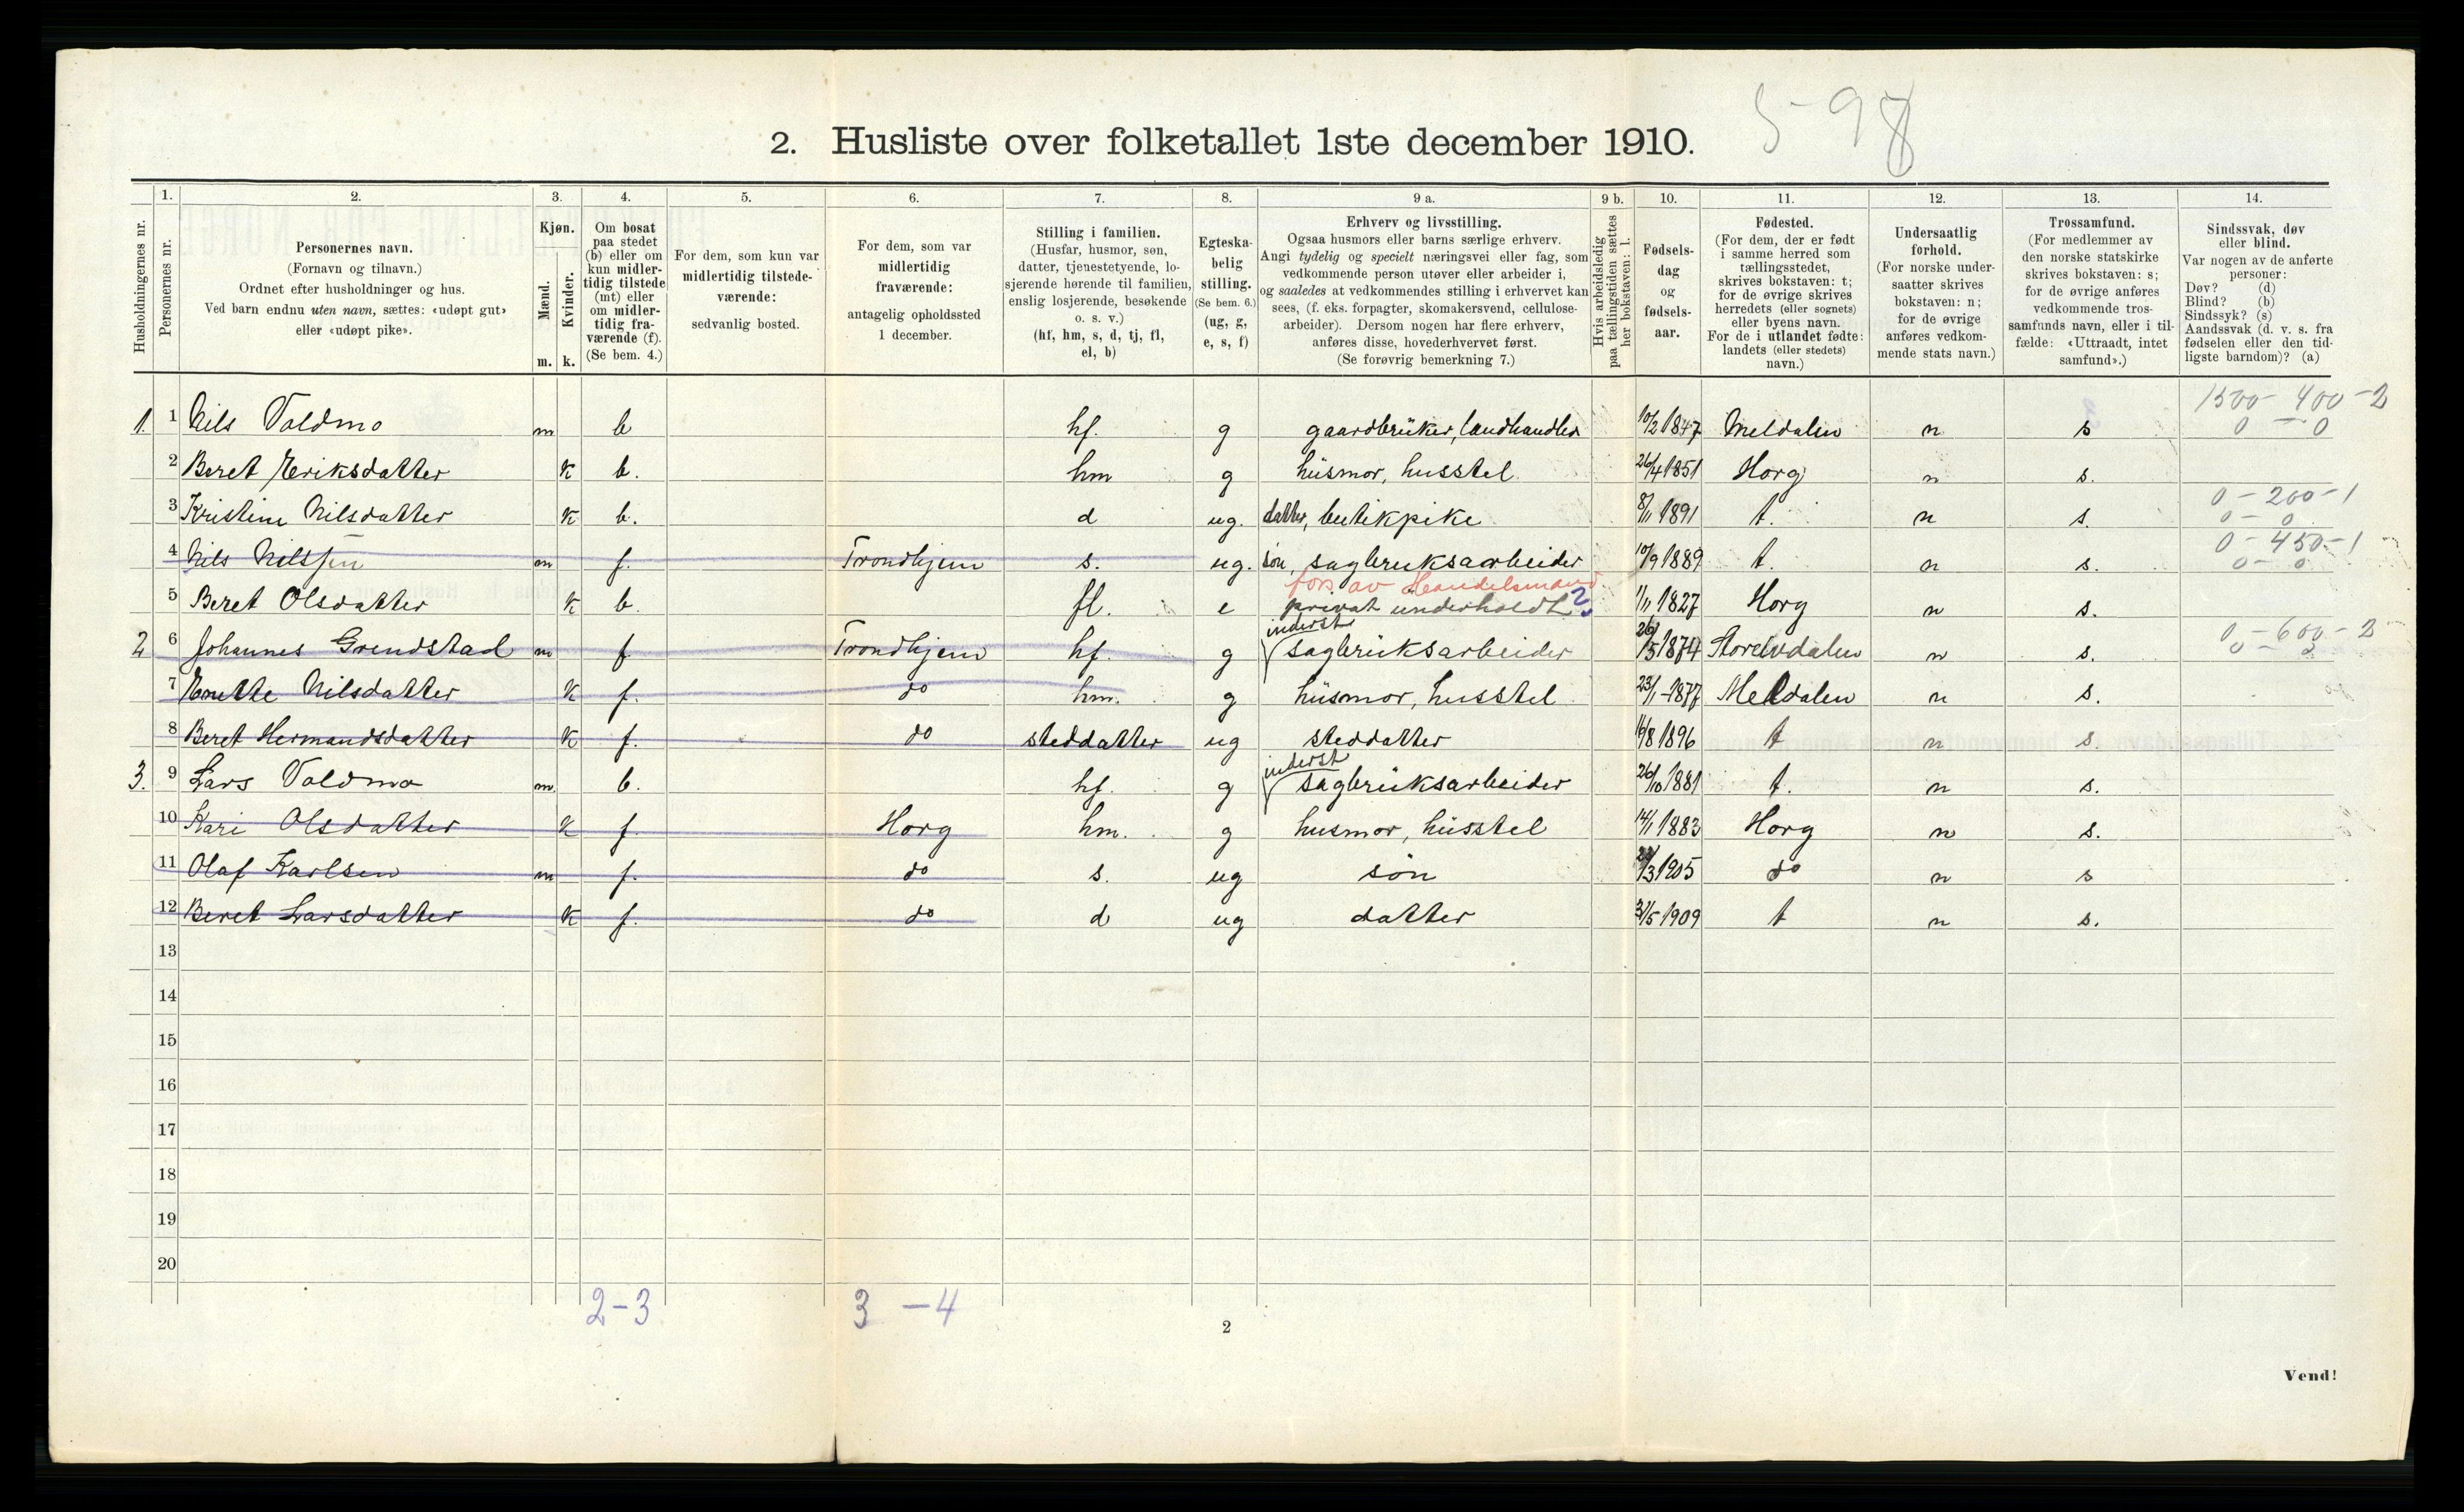 5-98
2. Husliste over folketallet 1ste december 1910.
Husholdningernes nr.
1. Personernes nr.
2. Personernes navn. (Fornavn og tilnavn.) Ordnet efter husholdninger og hus. Ved barn endnu uten navn, sættes: «udøpt gut» eller «udøpt pike».
3. Kjøn. Mænd. m. Kvinder. k.
4. Om bosat paa stedet (b) eller om kun midlertidig tilstede (mt) eller om midlertidig fraværende (f). (Se bem. 4.)
5. For dem, som kun var midlertidig tilstedeværende: sedvanlig bosted.
6. For dem, som var midlertidig fraværende: antagelig opholdssted 1 december.
7. Stilling i familien. (Husfar, husmor, søn, datter, tjenestetyende, losjerende hørende til familien, enslig losjerende, besøkende o. s. v.) (hf, hm, s, d, tj, fl, el, b)
8. Egteskabelig stilling. (Se bem. 6.) (ug, g, e, s, f)
9 a. Erhverv og livsstilling. Ogsaa husmors eller barns særlige erhverv. Angi tydelig og specielt næringsvei eller fag, som vedkommende person utøver eller arbeider i, og saaledes at vedkommendes stilling i erhvervet kan sees, (f. eks. forpagter, skomakersvend, cellulosearbeider). Dersom nogen har flere erhverv, anføres disse, hovederhvervet først. (Se forøvrig bemerkning 7.)
9 b. Hvis arbeidsledig paa tællingstiden sættes her bokstaven: l.
10. Fødselsdag og fødselsaar.
11. Fødested. (For dem, der er født i samme herred som tællingsstedet, skrives bokstaven: t; for de øvrige skrives herredets (eller sognets) eller byens navn. For de i utlandet fødte: landets (eller stedets) navn.)
12. Undersaatlig forhold. (For norske undersaatter skrives bokstaven: n; for de øvrige anføres vedkommende stats navn.)
13. Trossamfund. (For medlemmer av den norske statskirke skrives bokstaven: s; for de øvrige anføres vedkommende trossamfunds navn, eller i tilfælde: «Uttraadt, intet samfund».)
14. Sindssvak, døv eller blind. Var nogen av de anførte personer: Døv? (d) Blind? (b) Sindssyk? (s) Aandssvak (d. v. s. fra fødselen eller den tidligste barndom)? (a)
1. 1 Nils Voldmo m b hf. g gaardbruker, landhandler 10/2 1847 Meldalen n s 1500-400-2 0-0
2 Beret Eriksdatter k b. hm g husmor, husstel 26/4 1851 Horg n s.
3 Kristine Nilsdatter k b. d ug. datter, butikpike 8/11 1891 t. n s. 0-200-1 0-0
4 Nils Nilssen m f. Trondhjem s. ug. søn, sagbruksarbeider 10/9 1889 t. n s. 0-450-1 0-0
fors av Handelsmand
5 Beret Olsdatter k b. fl. e privat underholdt ? 1/11 1827 Horg n s.
inderst
2 6 Johannes Grendstad m f Trondhjem hf. g sagbruksarbeider 26/5 1874 Storelvdalen n s. 0-600-2
7 Enette Nilsdatter k f. do hm. g husmor, husstel 23/1-1877 Meldalen n s.
8 Beret Hermandsdatter k f. do steddatter ug steddatter 16/8 1896 t n s.
inderst
3. 9 Lars Voldmo m. b. hf. g sagbruksarbeider 26/10 1881 t. n s.
10 Kari Olsdatter k f. Horg hm. g husmor, husstel 14/1 1883 Horg n s.
11 Olaf Karlsen m f. do s. ug søn /3 1905 do n s
12 Beret Larsdatter k f. do d ug datter 31/5 1909 t n s.
13
14
15
16
17
18
19
20
2-3 3-4
2
Vend!